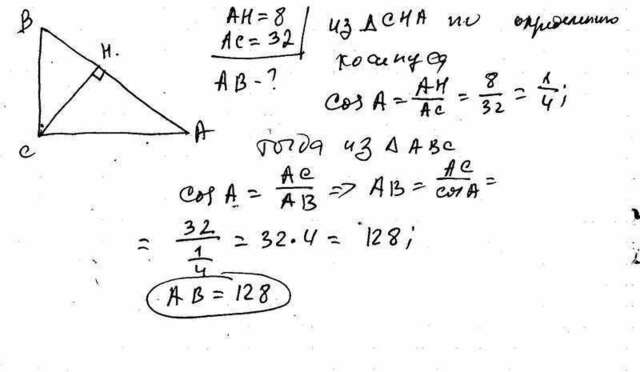 B
H.
C
A
AH = 8
AC = 32
AB - ?
из ΔCHA по определению
косинуса
cos A = AH/AC = 8/32 = 1/4;
тогда из Δ ABC
cos A = AC/AB => AB = AC/cos A =
= 32/(1/4) = 32·4 = 128;
AB = 128